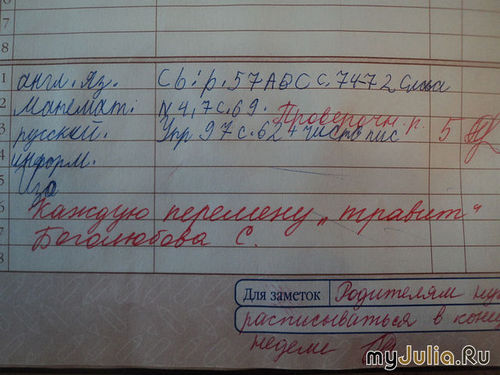 7
8
1 англ. яз. Сб: р. 57ABC с. 74 72 слова
2 Математ. N 4, 7 с. 69. Проверочн. р.
3 русский. Упр 97 с. 62 + чистопис 5
4 информ.
5
6 Каждую перемену „травит“
7 Боголюбова С.
8
Для заметок Родителям
расписываться в конце
недели
myJulia.Ru